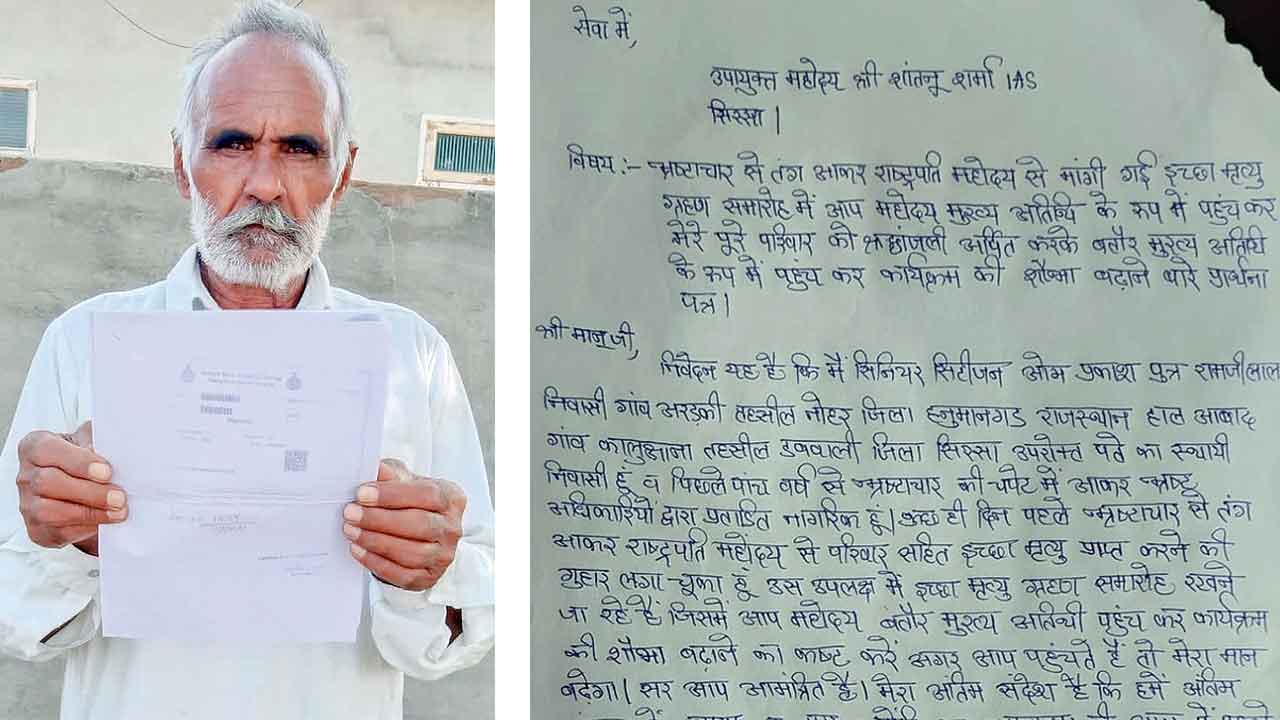 सेवा में,
उपायुक्त महोदय श्री शांतनू शर्मा IAS
सिरसा।
विषय:- भ्रष्टाचार से तंग आकर राष्ट्रपति महोदय से मांगी गई इच्छा मृत्यु
ग्रहण समारोह में आप महोदय मुख्य अतिथि के रूप में पहुंच कर
मेरे पूरे परिवार को श्रद्धांजली अर्पित करके बतौर मुख्य अतिथी
के रूप में पहुंच कर कार्यक्रम की शौभा बढ़ाने बारे प्रार्थना
पत्र।
श्री मान् जी,
निवेदन यह है कि मैं सिनियर सिटीजन ओम प्रकाश पुत्र रामजीलाल
निवासी गांव अरड़की तहसील नोहर जिला हनुमानगड राजस्थान हाल आबाद
गांव कालुआना तहसील डबवाली जिला सिरसा उपरोक्त पते का स्थायी
निवासी हूं व पिछले पांच वर्ष से भ्रष्टाचार की चपेट में आकर भ्रष्ट
अधिकारियों द्वारा प्रताडित नागरिक हूं। कुछ ही दिन पहले भ्रष्टाचार से तंग
आकर राष्ट्रपति महोदय से परिवार सहित इच्छा मृत्यु प्राप्त करने की
गुहार लगा चूका हूं उस उपलक्ष में इच्छा मृत्यु ग्रहण समारोह रखने
जा रहे हैं जिसमें आप महोदय बतौर मुख्य अतिथी पहुंच कर कार्यक्रम
की शौभा बढ़ाने का काष्ट करें अगर आप पहुंचते हैं तो मेरा मान
बढ़ेगा। सर आप आमंत्रित है। मेरा अंतिम संदेश है कि हमें अंतिम